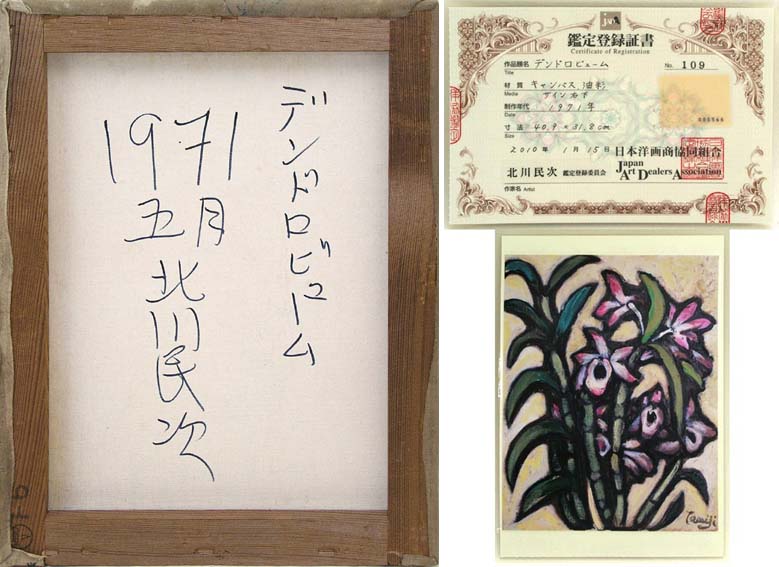 デンドロビューム
1971
五月
北川民次
鑑定登録証書
Certificate of Registration
作品題名 デンドロビューム
Title
No. 109
材質 キャンバス 油彩
Media サイン右下
制作年代 1971年
Date
寸法 40.9×31.8cm
Size
2010年 1月 15日
日本洋画商協同組合
Japan
Art Dealers Association
北川民次 鑑定登録委員会
作家名 Artist
Tamiji